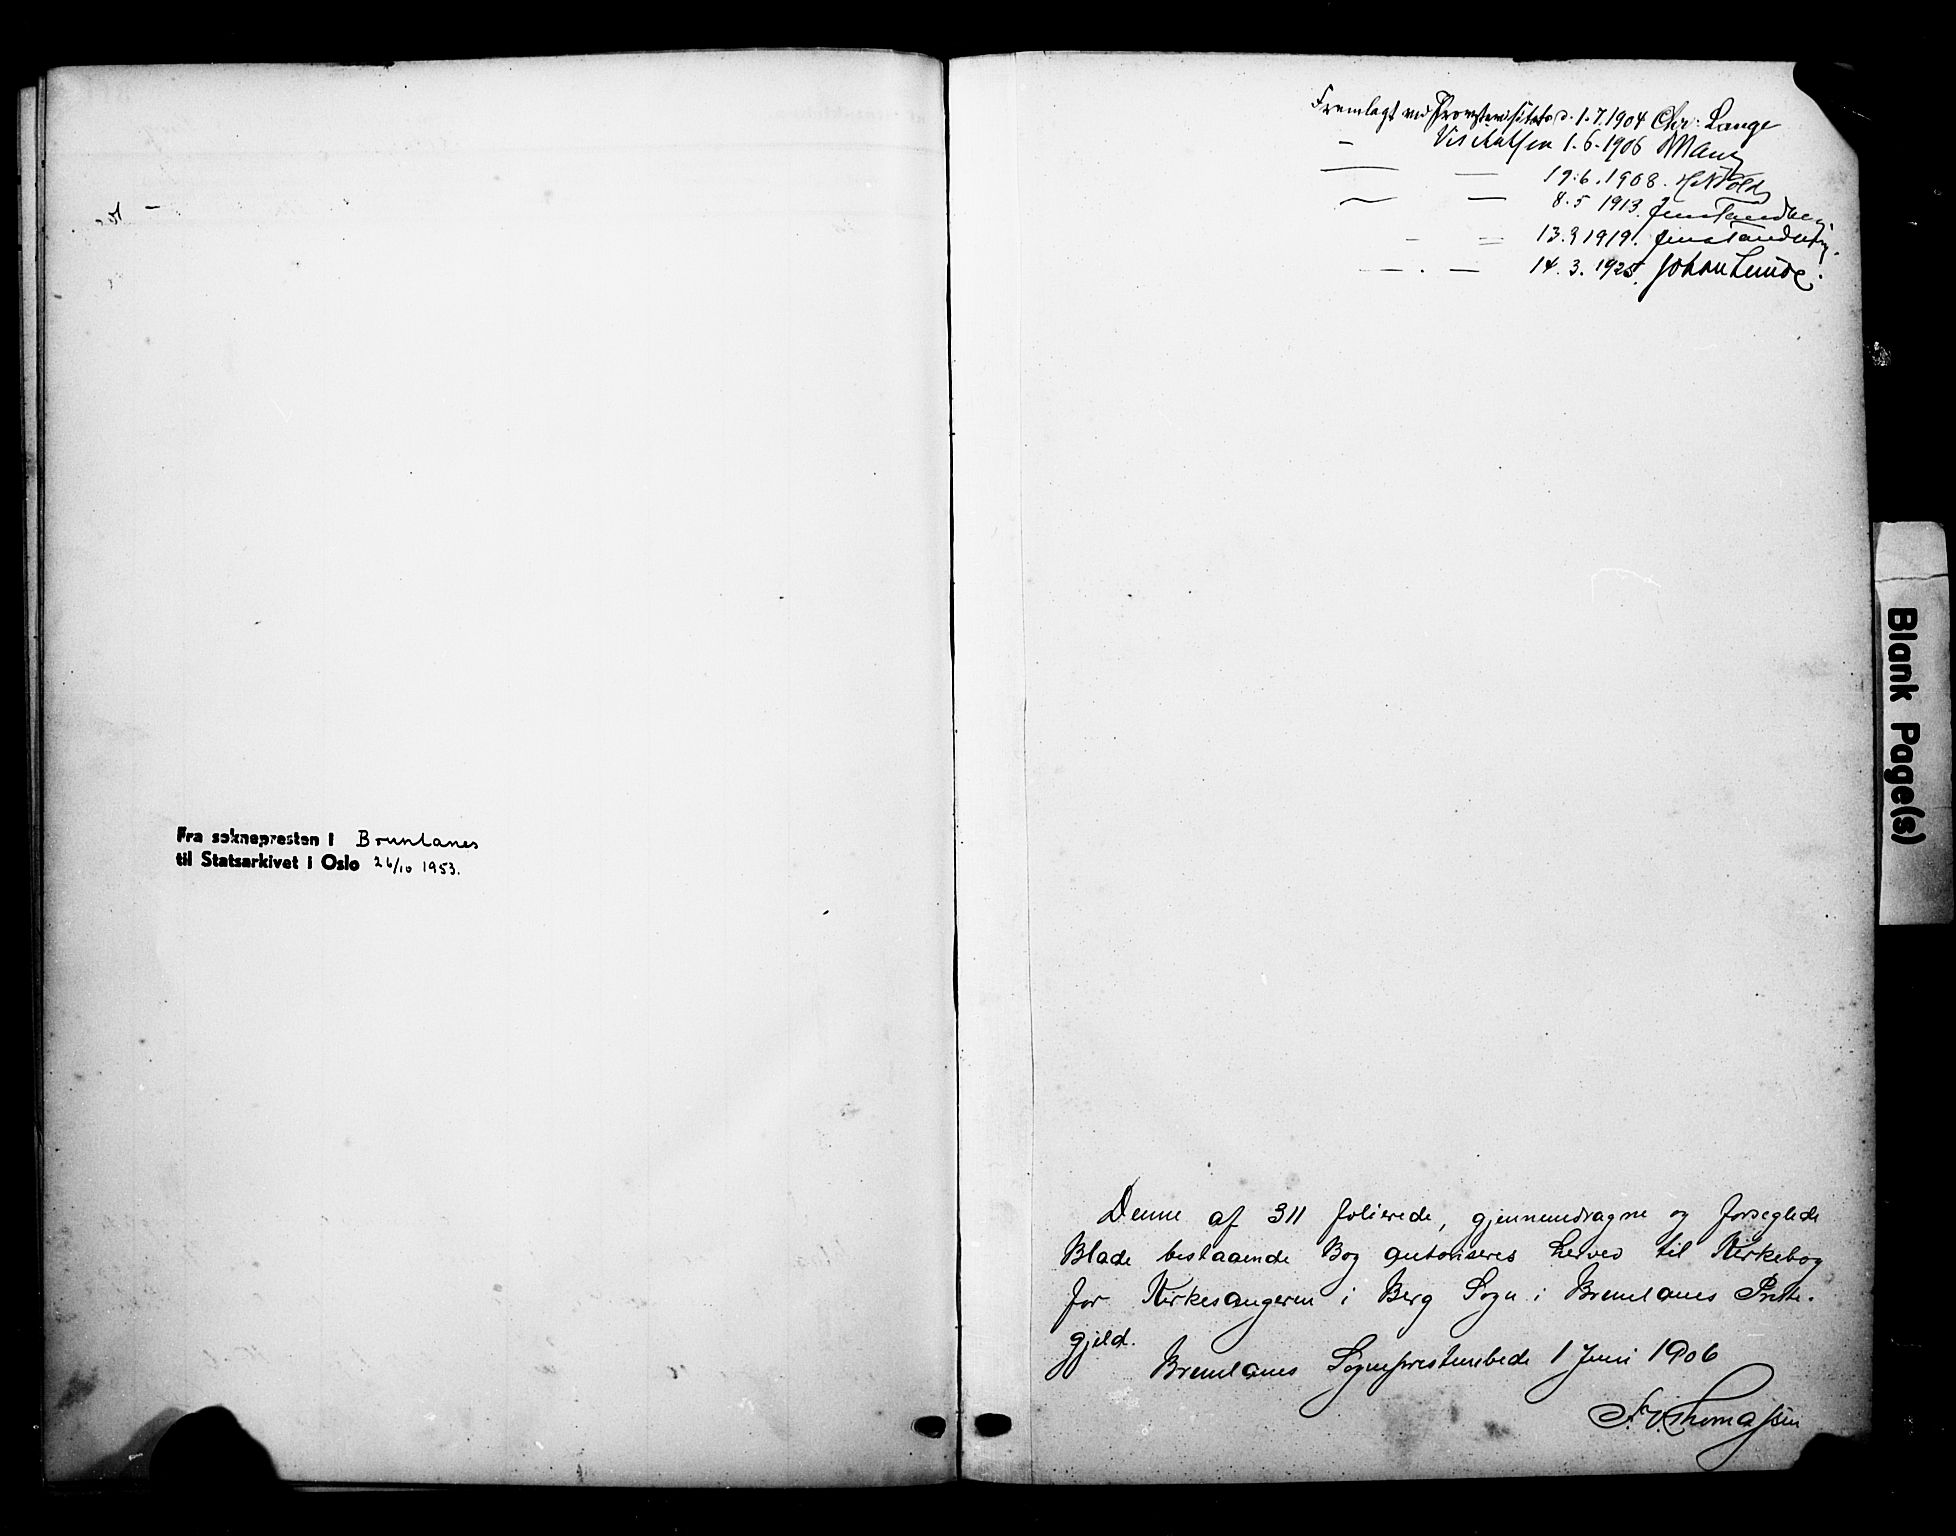 Fra soknepresten i Brunlanes
til Statsarkivet i Oslo 26/10 1953.
Fremlagt ved Provstevisitats d. 1.7.1904 Chr. Lange
– Visitatsen 1-6-1906
— — 19.6.1908.
— — 8.5 1913. Jens Tandberg.
– = 13.9 1919. Jens Tandberg.
— . — 14.3.1925. Johan Lunde.
Denne af 311 folierede, gjennemdragne og forseglede
Blade bestaaende Bog autoriseres herved til Kirkebog
for Kirkesangeren i Berg Sogn i Brunlanes Preste-
gjeld.
Brunlanes Sogneprestembede 1 Juni 1906
Thomassen
Blank Page(s)